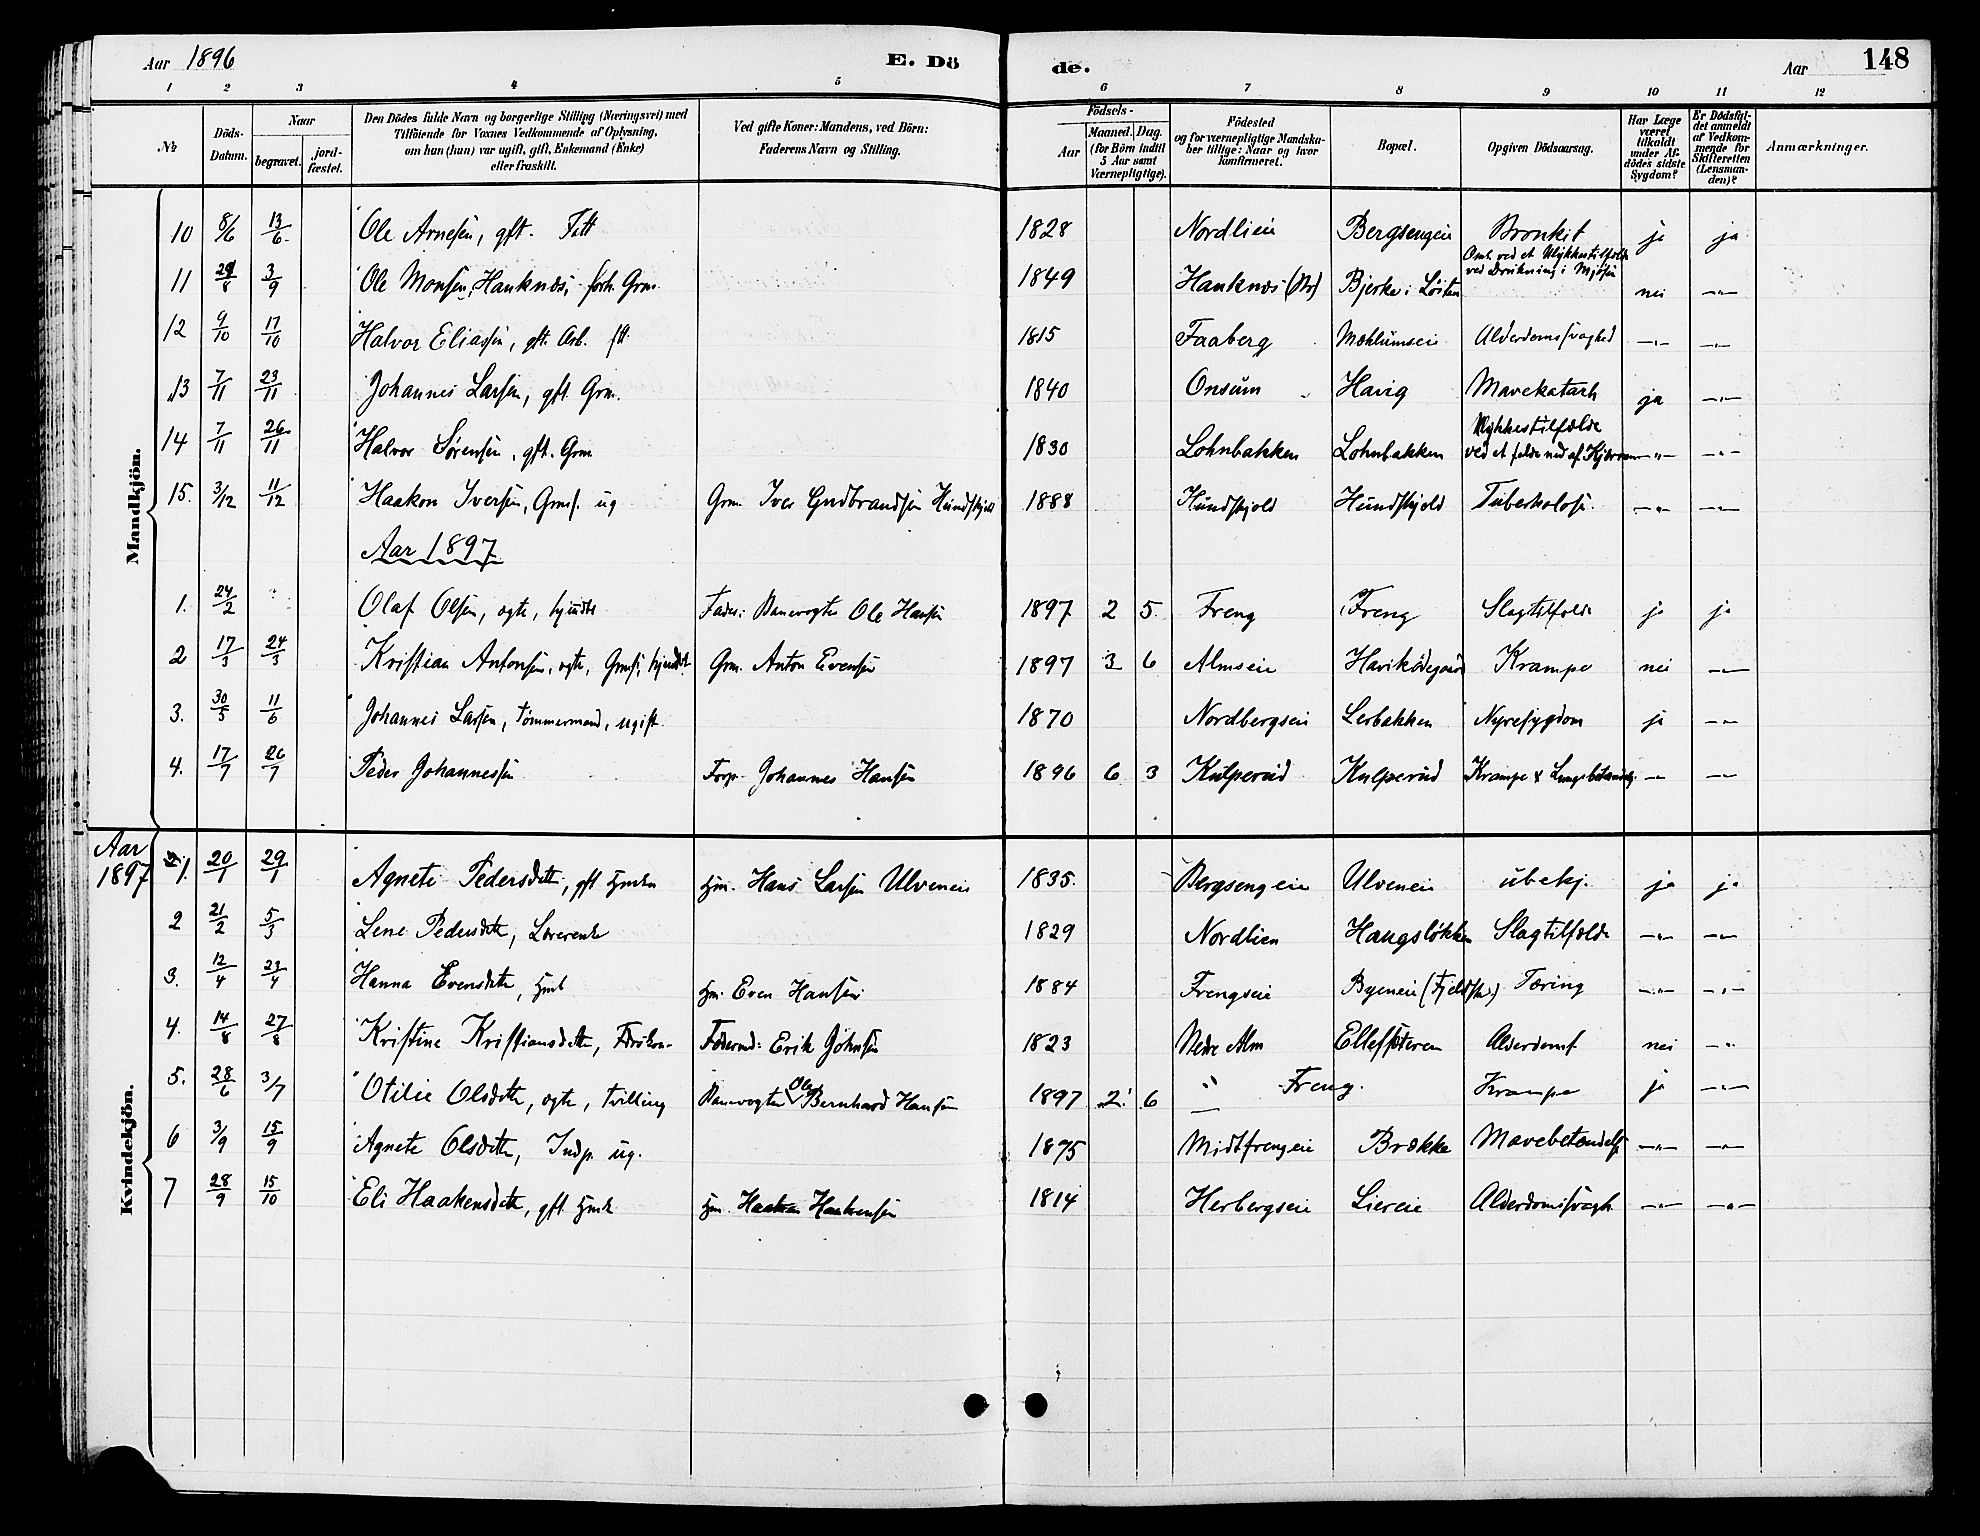 Aar 1896
E. Dö
de.
Aar
148
1 2 3 4 5 6 7 8 9 10 11 12
№
Döds-Datum.
Naar
begravet.
jord-fæstet.
Den Dödes fulde Navn og borgerlige Stilling (Næringsvei) med
Tilföiende for Voxnes Vedkommende af Oplysning,
om han (hun) var ugift, gift, Enkemand (Enke)
eller fraskilt.
Ved gifte Koner: Mandens, ved Börn:
Faderens Navn og Stilling.
Födsels-
Aar
Maaned. Dag.
(for Börn indtil
5 Aar samt
Værnepligtige).
Födested
og for værnepligtige Mandska-
ber tillige: Naar og hvor
konfirmeret.
Bopæl.
Opgiven Dödsaarsag.
Har Læge
været
tilkaldt
under Af-
dödes sidste
Sygdom?
Er Dödsfal-
det anmeldt
af Vedkom-
mende for
Skifteretten
(Lensman-
den)?
Anmærkninger.
Mandkjön.
10 8/6 13/6 Ole Arnesen, gft. 1828 Nordlien Bergsengen Bronkit ja ja
11 3/9 Ole Monsen, Hanknæs, Grm. 1849 Hanknæs Bjerke i Löiten Omk. ved et Ulykkestilfælde ved Drukning i Mjøsen nei —„—
12 9/10 17/10 Halvor Eliassen, gft. Arb. 1815 Faaberg Mæhlumseie Alderdomssvaghed —„— —„—
13 7/11 23/11 Johannes Larsen, gft. Grm. 1840 Onsum Havig Mavekatarh ja —„—
14 7/11 26/11 Halvor Sørensen, gft. Grm 1830 Lohnbakken Lohnbakken Ulykkestilfælde ved et —„— —„—
15. 3/12 11/12 Haakon Iversen, Grms. ug Grm. Iver Gudbrandsen Hundskjold 1888 Hundskjold Hundskjold Tuberkolose. —„— —„—
Aar 1897
1. 24/2 Olaf Olsen, ægte, Fader: Banevogter Ole Hansen 1897 2 5 Freng Freng Slagtilfælde ja ja
2 17/3 24/3 Kristian Antonsen, ægte, Grm. Anton Evensen 1897 3 6 Almseie Krampe nei —„—
3. 30/5 11/6 Johannes Larsen, Tømmermand, ugift 1870 Nordbergseie Lerbakken Nyresygdom ja —„—
4. 17/7 26/7 Peder Johannessen Forp. Johannes Hansen 1896 6 3 Kulperud Kulperud Krampe & Lungebetændelse —„— —„—
Aar
1897
Kvindekjön.
1. 20/1 29/1 Agnete Pedersdtr, gft Hans Larsen Ulveneie 1835 Bergsengeie Ulveneie ubekj. ja ja
2 21/2 5/3 Lene Pedersdtr, 1829 Nordlien Haugsløkken Slagtilfælde —„— —„—
3. 12/4 23/4 Hanna Evensdtr, Even Hansen 1884 Frengseie Byeneie Tæring —„— —„—
4. 14/8 27/8 Kristine Kristiansdtr, Føderaad: Erik Johnsen 1823 Nedre Alm Alderdoms nei —„—
5. 28/6 3/7 Otilie Olsdtr, ægte, Tvilling Banevogter Ole Bernhard Hansen 1897 2 6 „ Freng. Krampe ja —„—
6 3/9 15/9 Agnete Olsdtr, Indp. ug. 1875 Midtfrengeie Brække Mavebetændelse —„— —„—
7 28/9 15/10 Eli Haakensdtr, gft Haaken Haakensen 1814 Herbergseie Liereie Alderdomssvagh. —„— —„—